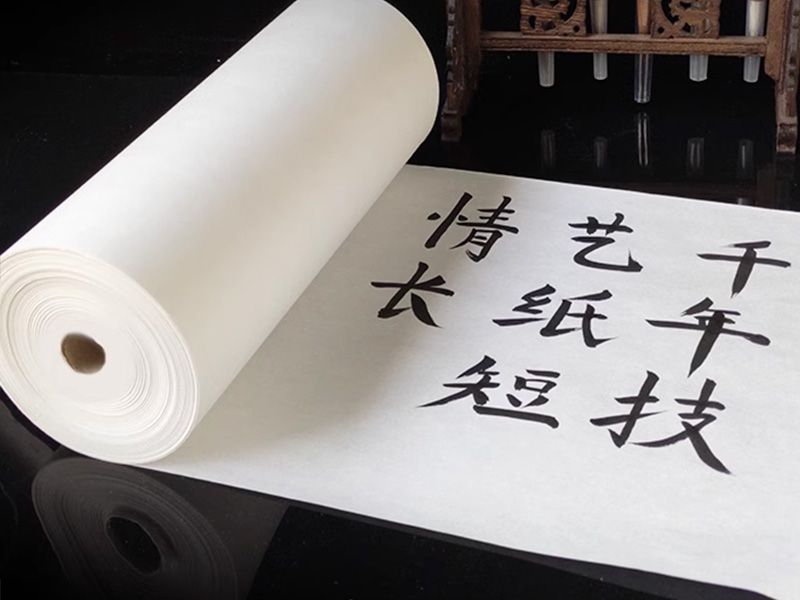 千年技
艺纸短
情长